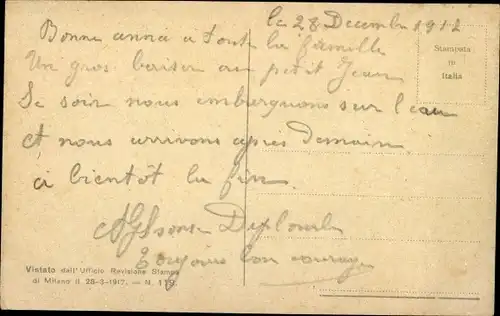 le 28 Decembre 1912
Bonne anné a toute la famille
Un gros baiser au petit Jean
Se soir nous embarquons sur l'eau
et nous arrivons après Demain
a bientôt la fin
Alphonse
Toujours bon courage
Stampata
in
Italia
Vistato dall'Ufficio Revisione Stampa
di Milano il 28-3-1917. — N. 119.